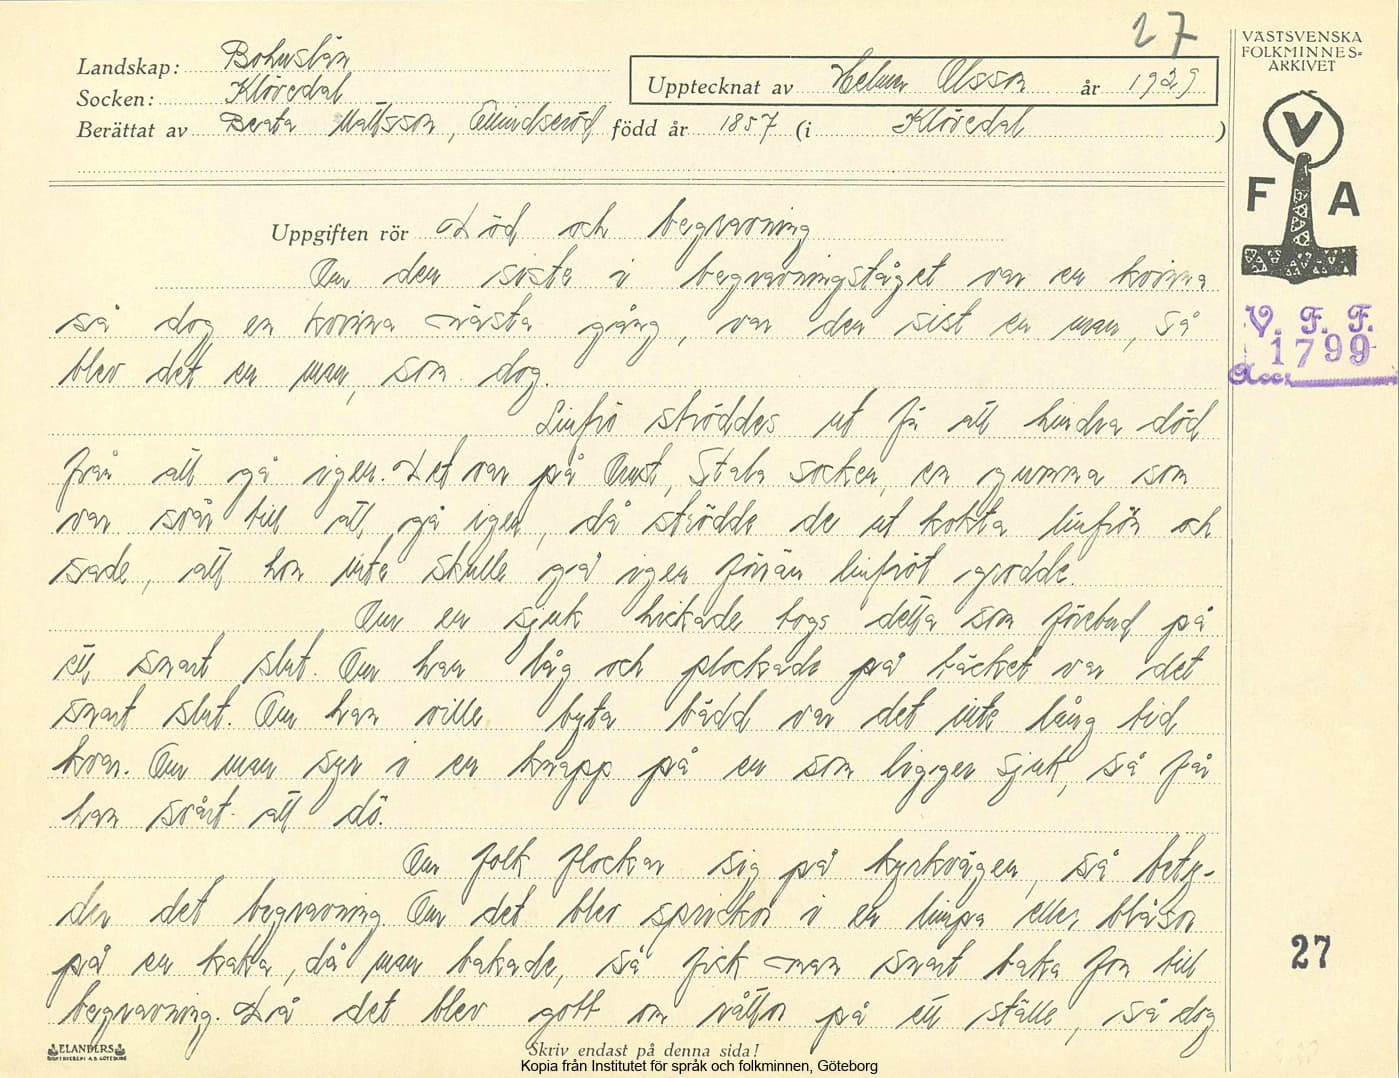 27
Landskap: Bohuslän
Socken: Klövedal
Berättat av Berta Mattsson, Almindseröd född år 1857 (i Klövedal)
Upptecknat av Helmer Olsson år 1929
VÄSTSVENSKA
FOLKMINNES=
ARKIVET
V
F A
V. F. F.
1799
Acc.
Uppgiften rör Död och begravning
Om den siste i begravningståget var en kvinna
så dog en kvinna nästa gång, var den sist en man, så
blev det en man, som dog.
Linfrö ströddes ut för att hindra död
från att gå igen. Det var på Orust, Stala socken, en gumma som
var svår till att gå igen, då strödde de ut kokta linfrön och
sade, att hon inte skulle gå igen förrän linfröt grodde.
Om en sjuk hickade togs detta som förebud på
ett snart slut. Om han låg och plockade på täcket var det
snart slut. Om han ville byta bädd var det inte lång tid
kvar. Om man syr i en knapp på en som ligger sjuk, så får
han svårt att dö.
Om folk flockar sig på kyrkvägen, så bety-
der det begravning. Om det blev sprickor i en limpa eller blåsor
på en kaka, då man bakade, så fick man snart baka för till
begravning. Då det blev gott om råttor på ett ställe, så dog
27
ELANDERS
BOKTRYCKERI A.B. GÖTEBORG
Skriv endast på denna sida!
Kopia från Institutet för språk och folkminnen, Göteborg